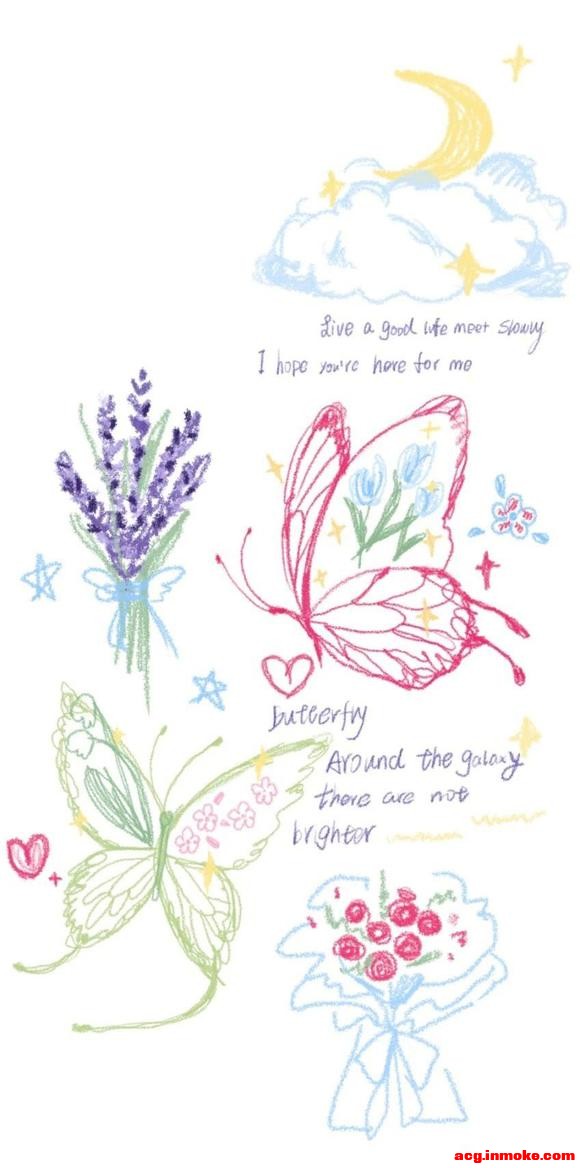 Live a good life meet slowly
I hope you're here for me
butterfly
Around the galaxy
there are not
brighter
acg.inmoke.com